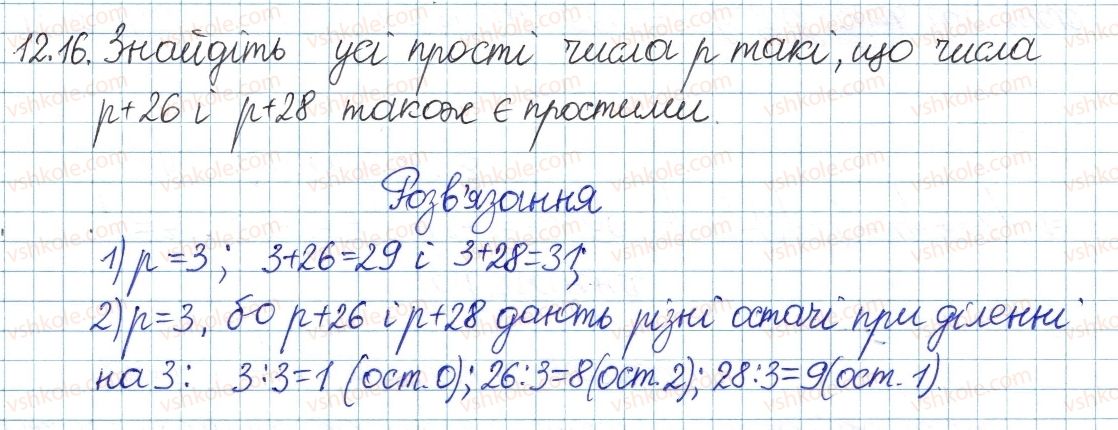 12.16. Знайдіть усі прості числа p такі, що числа
p+26 і p+28 також є простими.
Розв'язання
1) p=3; 3+26=29 і 3+28=31;
2) p=3, бо p+26 і p+28 дають різні остачі при діленні
на 3: 3:3=1 (ост. 0); 26:3=8 (ост. 2); 28:3=9 (ост. 1).